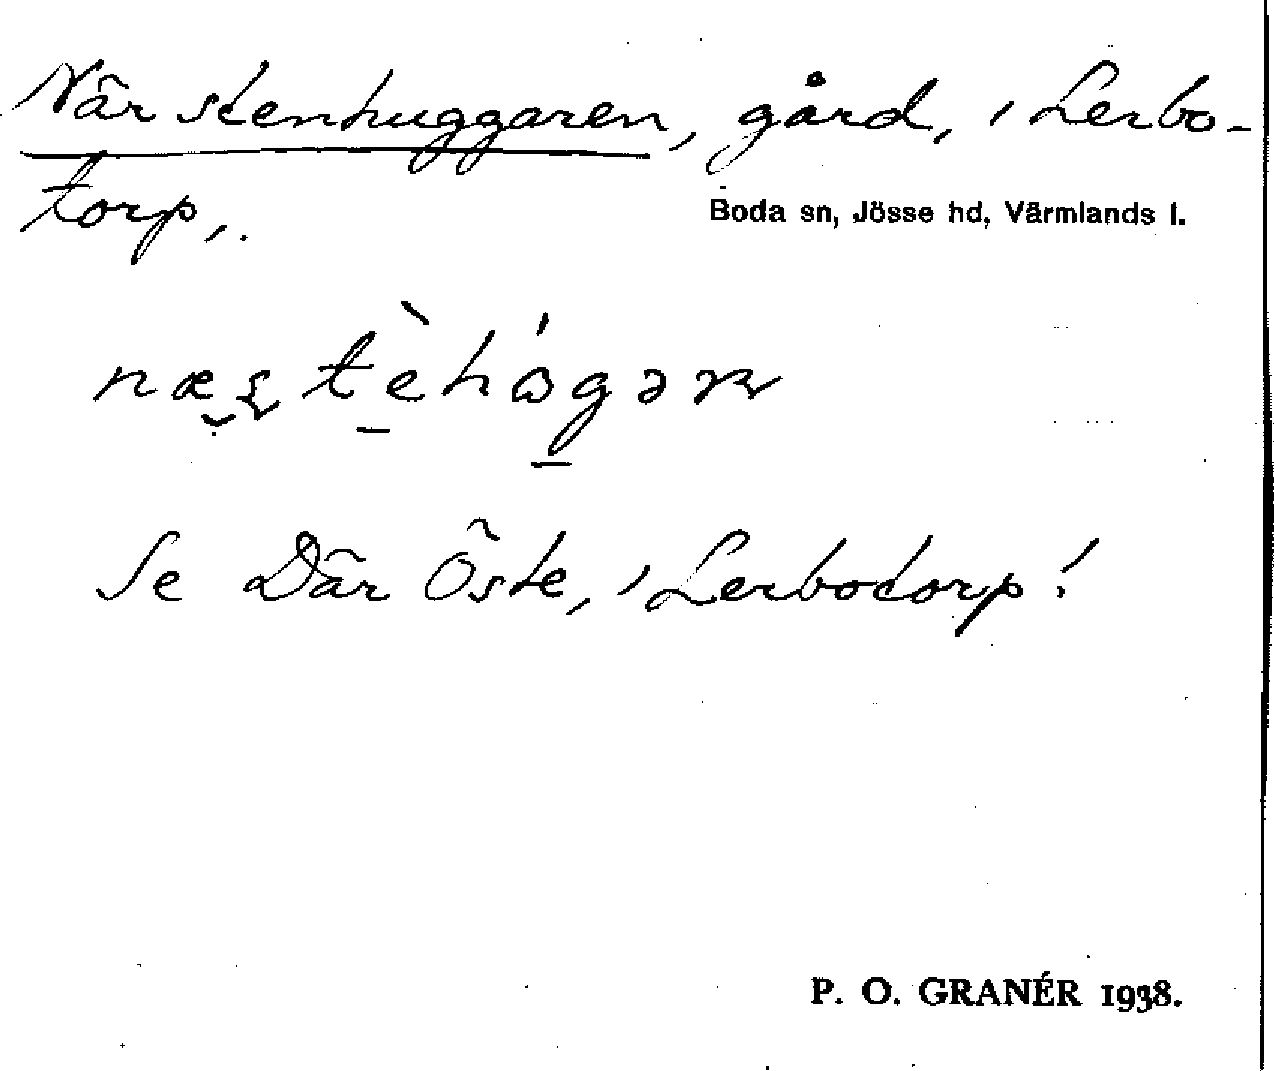 När stenhuggaren, gård, i Lerbo-
torp,.
Boda sn, Jösse hd, Värmlands l.
Se Där Öste, i Lerbotorp!
P. O. GRANÉR 1938.